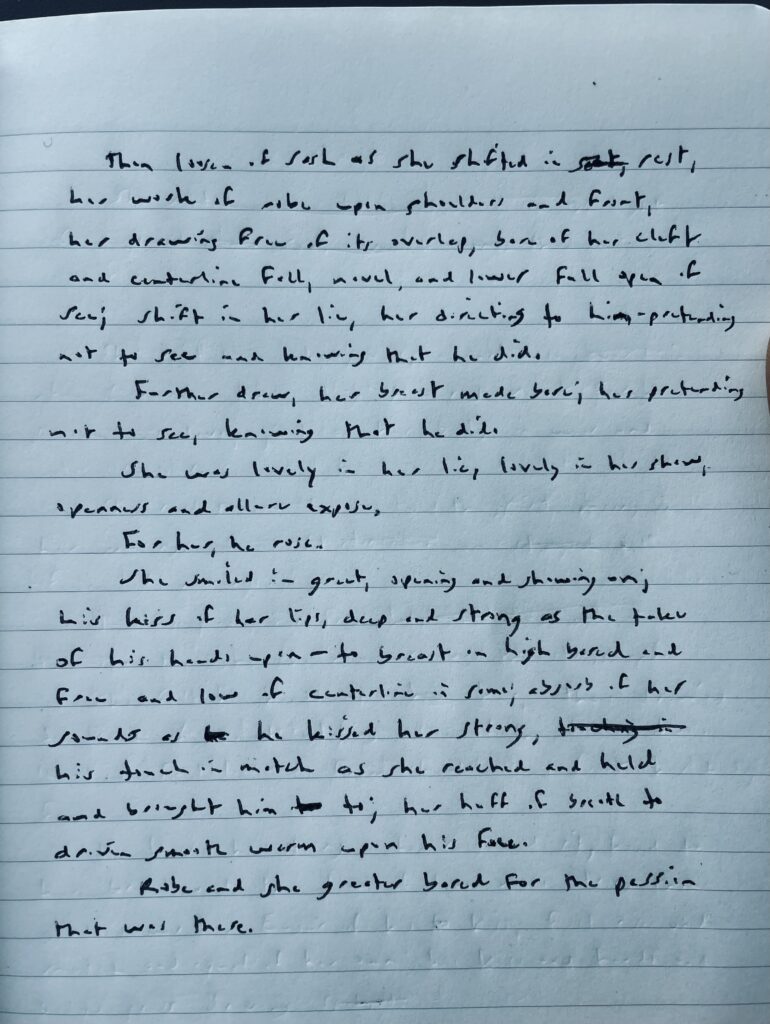 Then loosen of sash as she shifted in seat, rest,
her work of robe upon shoulders and front,
her drawing free of its overlap, bare of her cleft
and centerline full, navel, and lower fall open of
see; shift in her lie, her directing to him - pretending
not to see and knowing that he did.
Farther draw, her breast made bare; her pretending
not to see, knowing that he did.
She was lovely in her lie, lovely in her show,
openness and allure expose,
For her, he rose.
She smiled in greet, opening and showing on;
his kiss of her lips, deep and strong as the takes
of his hands upon - to breast on high bared and
free and low of centerline in same; absorb of her
sounds as he he kissed her strong, touching in
his touch in match as she reached and held
and brought him to to; her huff of breath to
driven smooth warm upon his face.
Robe and she greater bared for the passion
that was there.